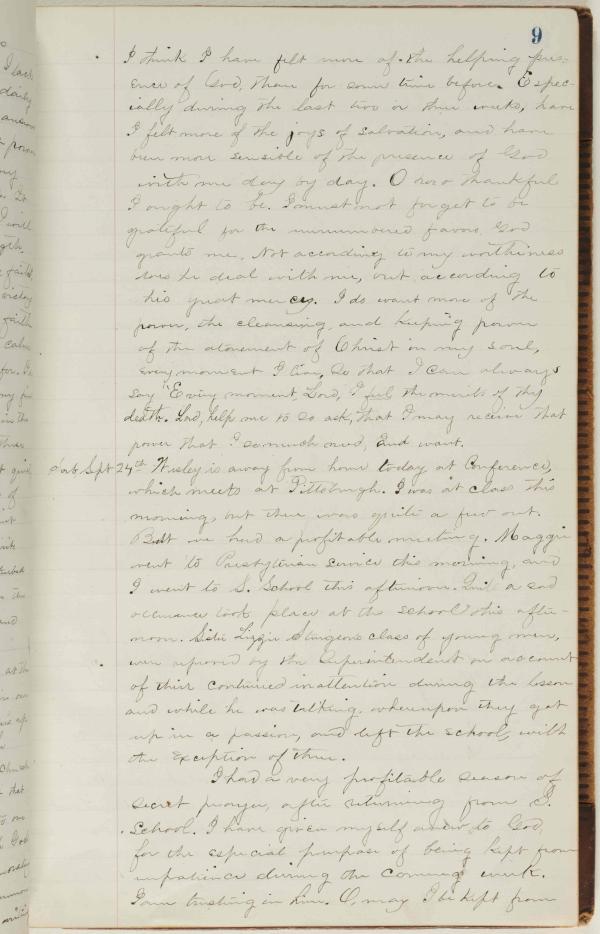 9
I think I have felt more of the helping pres-
ence of God, than for some time before. Espec-
ially during the last two or three weeks, have
I felt more of the joys of salvation, and have
been more sensible of the presence of God
with me day by day. O how thankful
I ought to be. I must not forget to be
grateful for the unnumbered favors God
grants me. Not according to my worthiness
does he deal with me, but according to
his great mercy. I do want more of the
power, the cleansing and keeping power
of the atonement of Christ in my soul,
every moment I live, So that I can always
say "Every moment, Lord, I feel the merits of thy
death. Lord, help me to so ask, that I may receive that
power that I so much need, and want.
Sab Sept 24th Wesley is away from home today at Conference,
which meets at Pittsburgh. I was at class this
morning, but there was quite a few out.
But we had a profitable meeting. Maggie
went to Presbyterian service this morning, and
I went to S. School this afternoon. Quite a sad
occurance took place at the school this after-
noon. Sister Lizzie Sturgeons class of young men,
were reproved by the Superintendent on account
of their continued inattention during the lesson
and while he was talking, whereupon they got
up in a passion, and left the school, with
the exception of three.
I had a very profitable season of
secret prayer, after returning from S.
School. I have given myself anew to God,
for the especial purpose of being kept from
impatience during the coming week.
I am trusting in him. O, may I be kept from